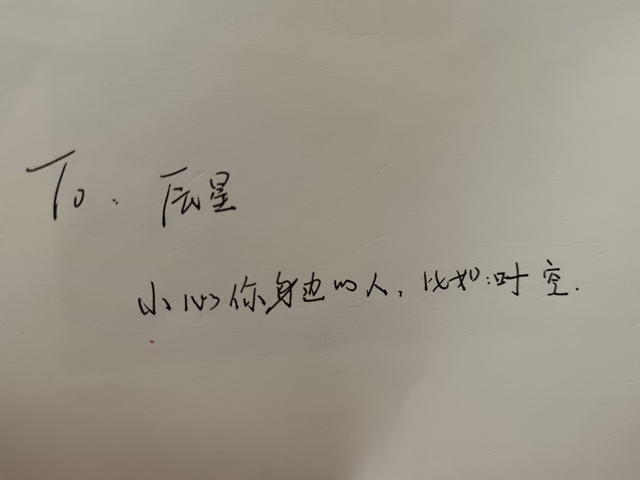 To. 辰星
小心你身边的人, 比如:叶空.